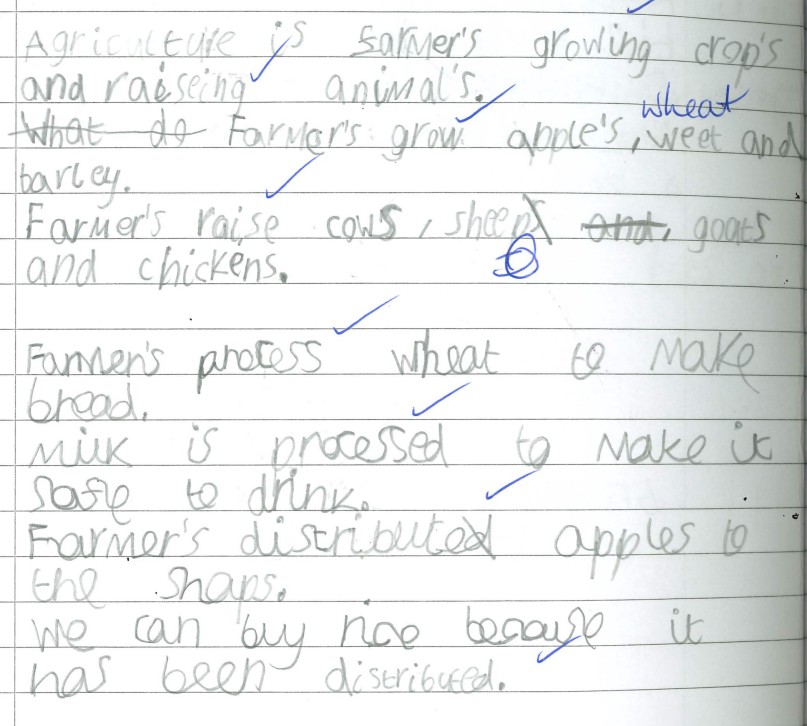 Agriculture is Farmer's growing crop's
and raiseing animal's.
wheat
What do Farmer's grow apple's, weet and
barley.
Farmer's raise cows, sheep and, goats
and chickens.
Farmer's process wheat to make
bread.
Milk is processed to make it
safe to drink.
Farmer's distributed apples to
the shops.
We can buy rice because it
has been distributed.